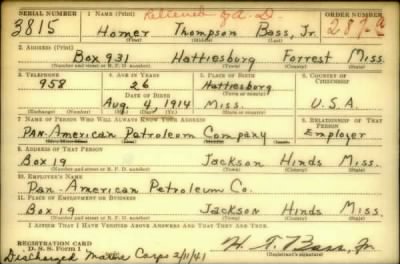 SERIAL NUMBER 1. NAME (Print) Relieved of A.D. ORDER NUMBER
3815 Homer Thompson Bass, Jr.
(First) (Middle) (Last)
2. ADDRESS (Print)
Box 931 Hattiesburg Forrest Miss.
(Number and street or R. F. D. number) (Town) (County) (State)
3. TELEPHONE 4. AGE IN YEARS 5. PLACE OF BIRTH 6. COUNTRY OF CITIZENSHIP
958 26 Hattiesburg
DATE OF BIRTH (Town or county)
Aug. 4, 1914 Miss. U.S.A.
(Exchange) (Number) (Mo.) (Day) (Yr.) (State or country)
7. NAME OF PERSON WHO WILL ALWAYS KNOW YOUR ADDRESS 8. RELATIONSHIP OF THAT PERSON
Pan-American Petroleum Company Employer
9. ADDRESS OF THAT PERSON
Box 19 Jackson Hinds Miss.
(Number and street or R. F. D. number) (Town) (County) (State)
10. EMPLOYER'S NAME
Pan-American Petroleum Co.
11. PLACE OF EMPLOYMENT OR BUSINESS
Box 19 Jackson Hinds Miss.
(Number and street or R. F. D. number) (Town) (County) (State)
I AFFIRM THAT I HAVE VERIFIED ABOVE ANSWERS AND THAT THEY ARE TRUE.
REGISTRATION CARD
D. S. S. Form 1 H. T. Bass, Jr.
(Registrant's signature)
Discharged Marine Corps 2/11/41